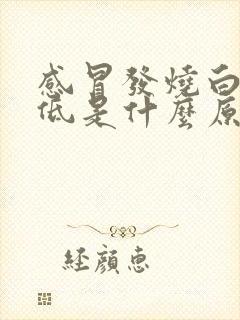 感冒發燒白
低是什麼原
經顏惠